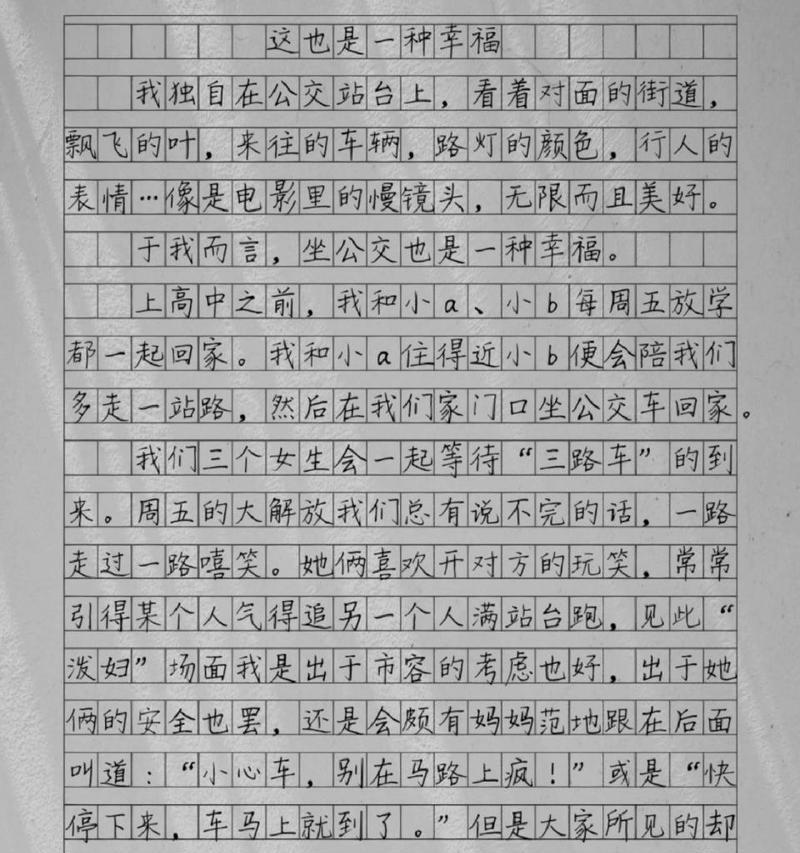 这也是一种幸福
我独自在公交站台上，看着对面的街道，
飘飞的叶，来往的车辆，路灯的颜色，行人的
表情…像是电影里的慢镜头，无限而且美好。
于我而言，坐公交也是一种幸福。
上高中之前，我和小a、小b每周五放学
都一起回家。我和小a住得近小b便会陪我们
多走一站路，然后在我们家门口坐公交车回家。
我们三个女生会一起等待“三路车”的到
来。周五的大解放我们总有说不完的话，一路
走过一路嘻笑。她俩喜欢开对方的玩笑，常常
引得某个人气得追另一个人满站台跑，见此“
泼妇”场面我是出于市容的考虑也好，出于她
俩的安全也罢，还是会颇有妈妈范地跟在后面
叫道：“小心车，别在马路上疯！”或是“快
停下来，车马上就到了。”但是大家所见的却